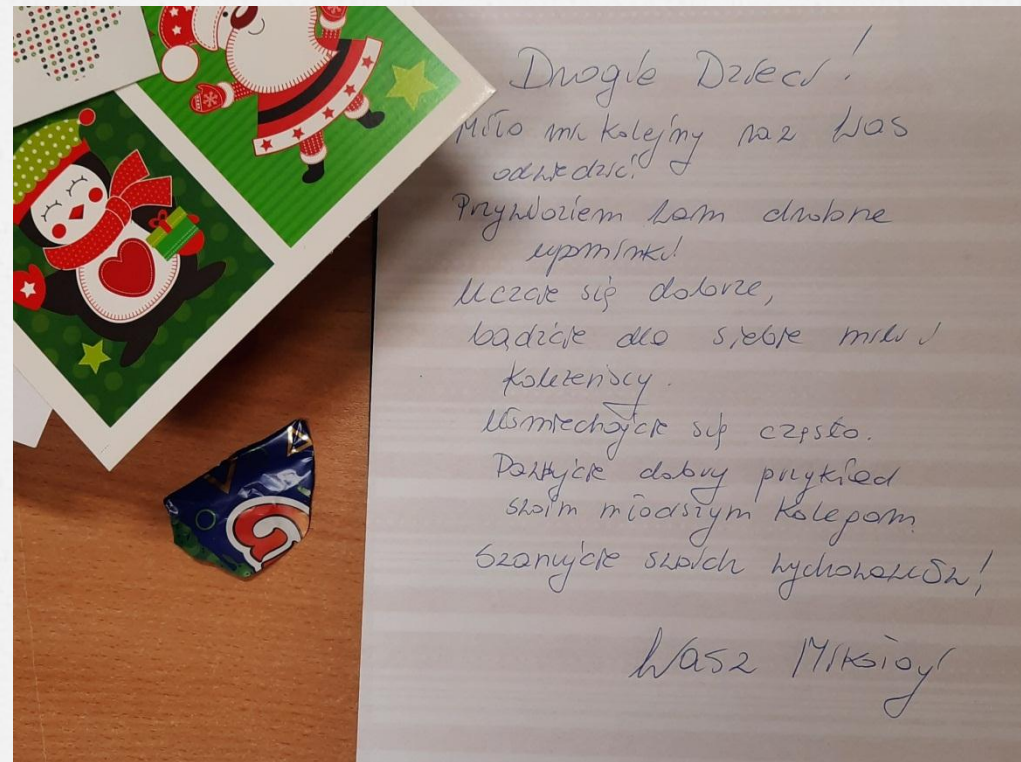 Drogie Dzieci!
Miło mi kolejny raz Was
odwiedzić!
Przywiozłem Wam drobne
upominki!
Uczcie się dobrze,
bądźcie dla siebie mili i
koleżeńscy.
Uśmiechajcie się często.
Dawajcie dobry przykład
swoim młodszym kolegom.
Szanujcie swoich wychowawców!
Wasz Mikołaj!
G